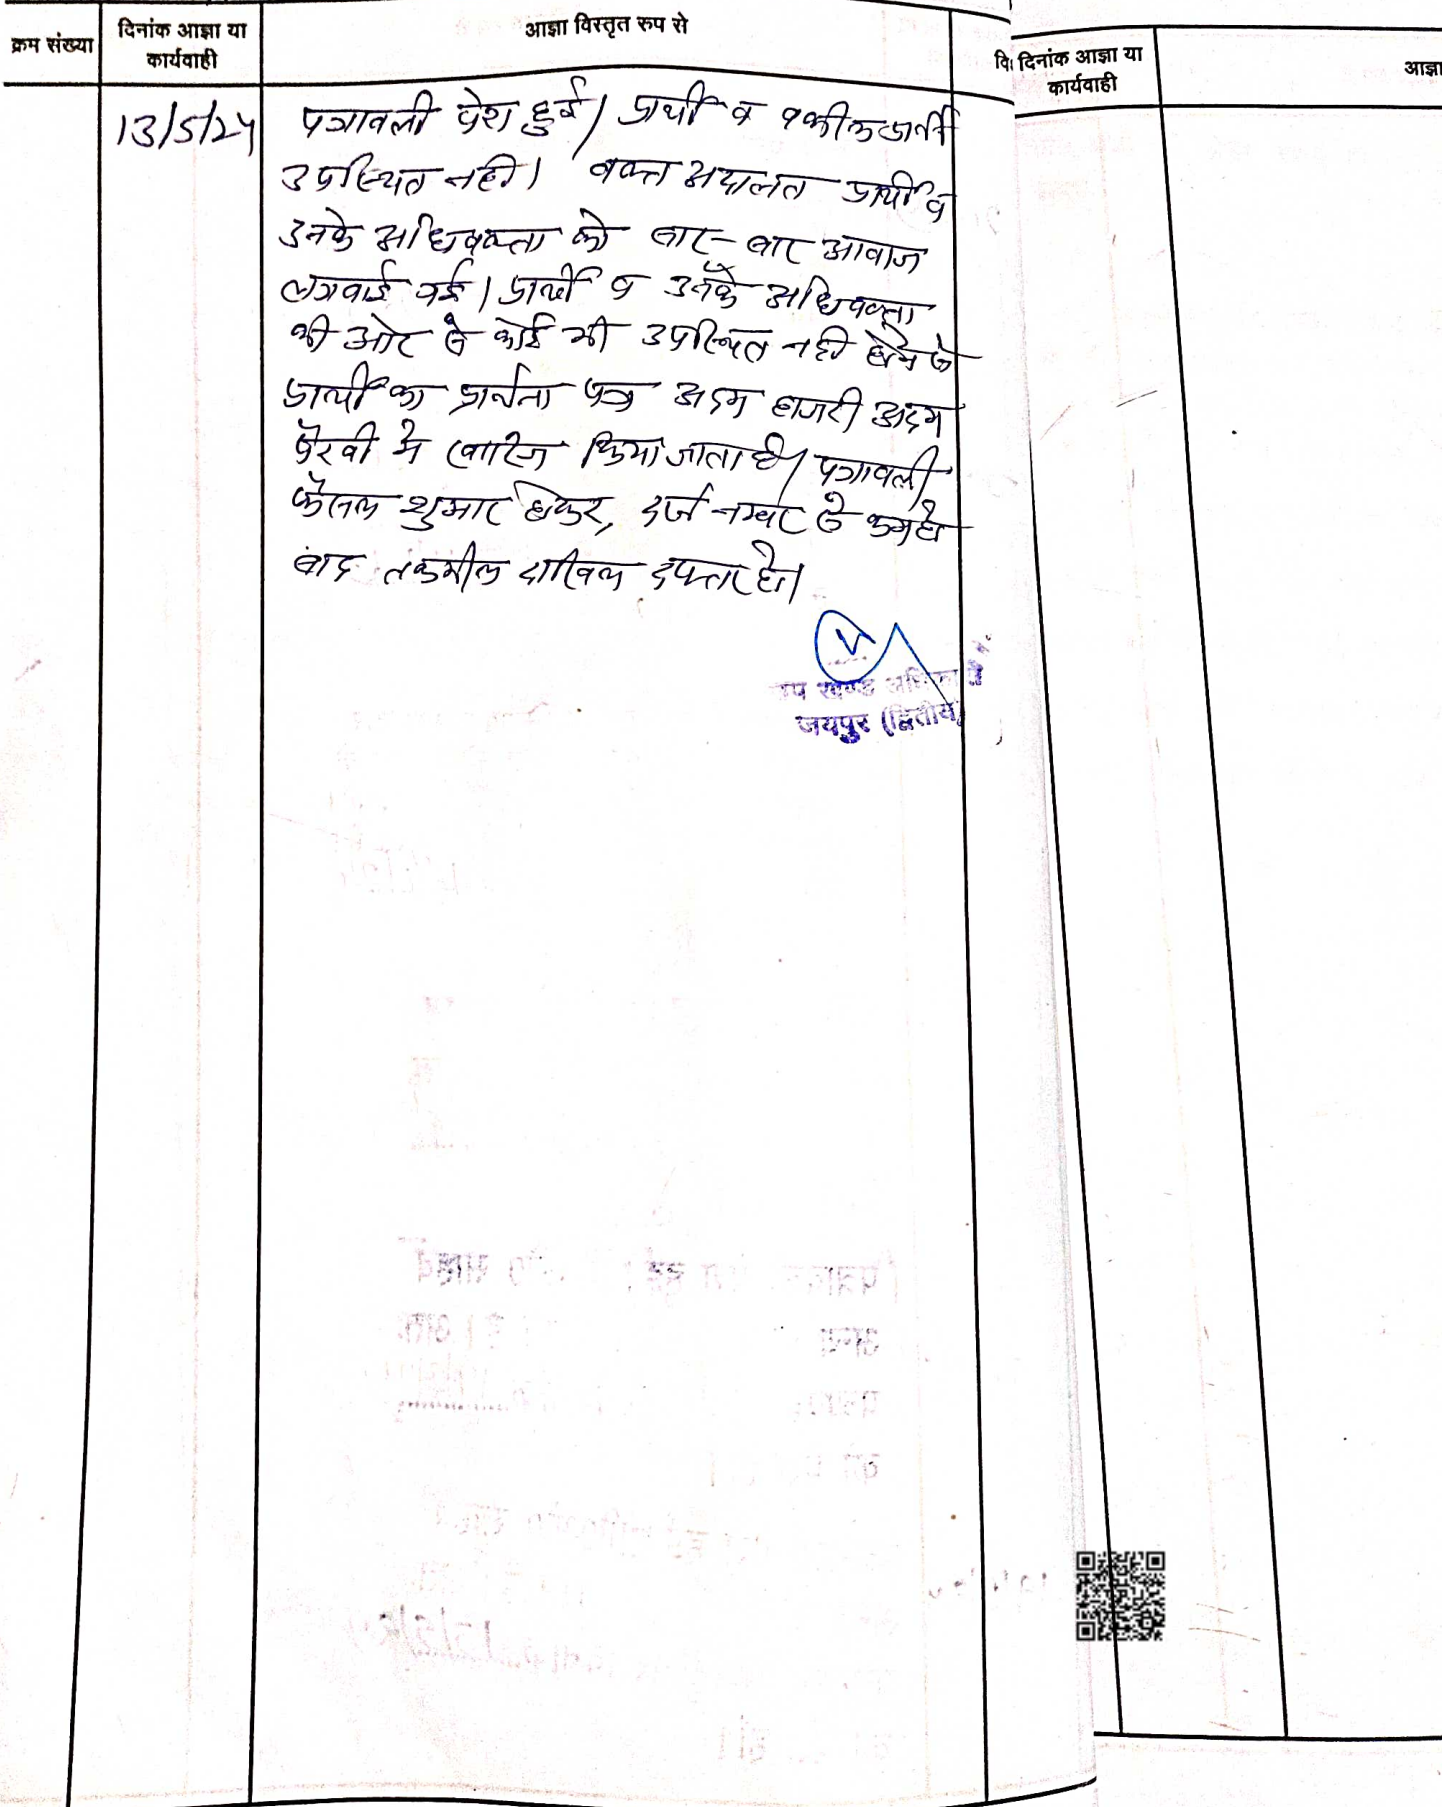 क्रम संख्या
दिनांक आज्ञा या
कार्यवाही
आज्ञा विस्तृत रुप से
13/5/24
पत्रावली पेश हुई। प्रार्थी व वकील प्रार्थी
उपस्थित नही। वक्त अदालत प्रार्थी व
उनके अधिवक्ता को बार-बार आवाज
लगवाई गई। प्रार्थी व उनके अधिवक्ता
की ओर से कोई भी उपस्थित नही होने से
प्रार्थी का प्रार्थना पत्र अदम हाजरी अदम
पैरवी मे खारिज किया जाता है। पत्रावली
फैसल शुमार होकर, दर्ज नम्बर से कम हो
बाद तकमील दाखिल दफ्तर हो।
उप खण्ड अधिकारी
जयपुर (द्वितीय)
दिनांक आज्ञा या
कार्यवाही
आज्ञा